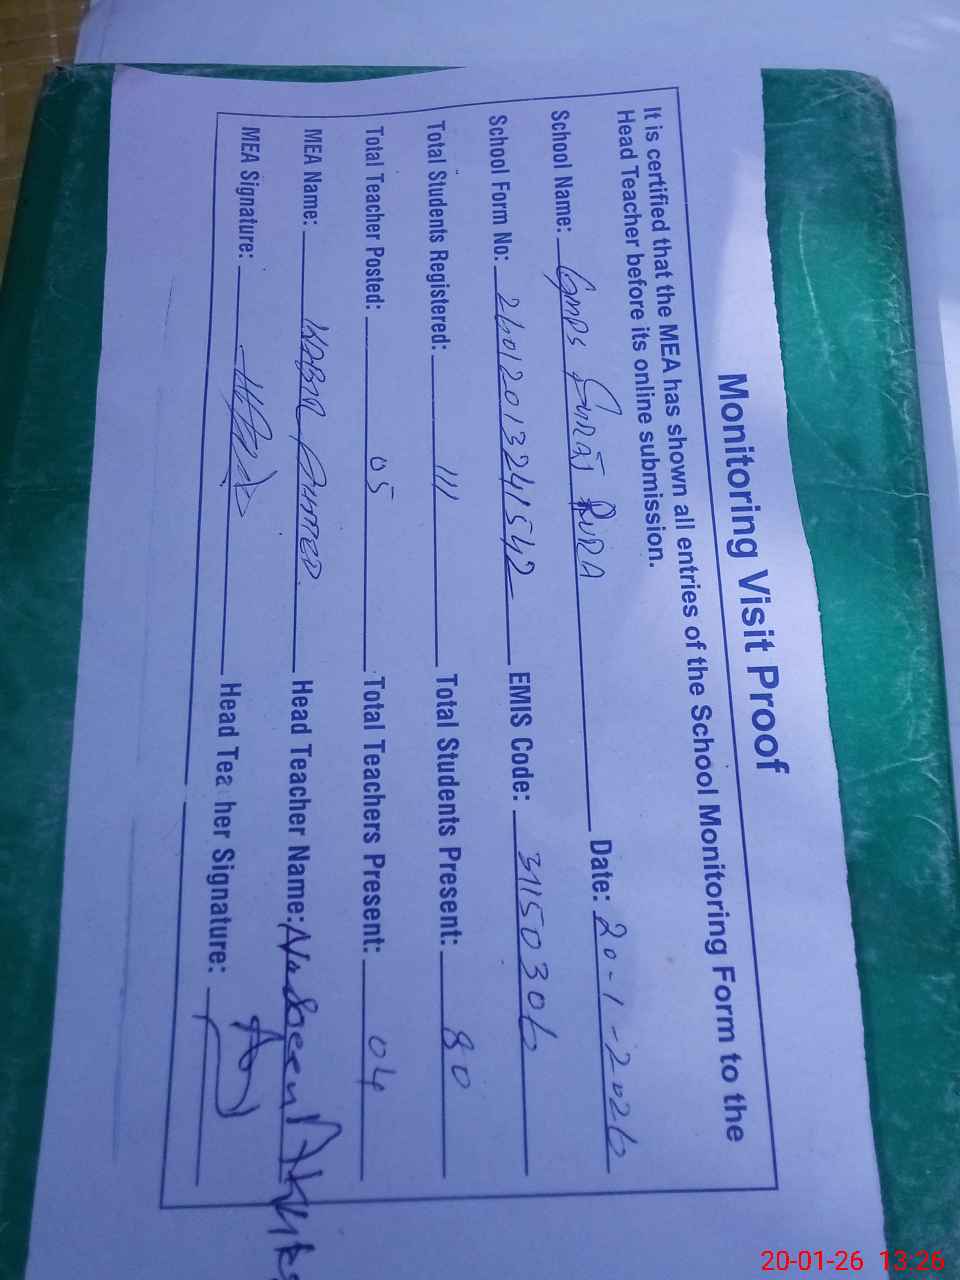 Monitoring Visit Proof
It is certified that the MEA has shown all entries of the School Monitoring Form to the
Head Teacher before its online submission.
School Name: GMPS Suraj Pura Date: 20-1-2026
School Form No: 26012013241542 EMIS Code: 31150306
Total Students Registered: 111 Total Students Present: 80
Total Teacher Posted: 05 Total Teachers Present: 04
MEA Name: Head Teacher Name: Nasreen
MEA Signature: Head Tea her Signature:
20-01-26 13:26